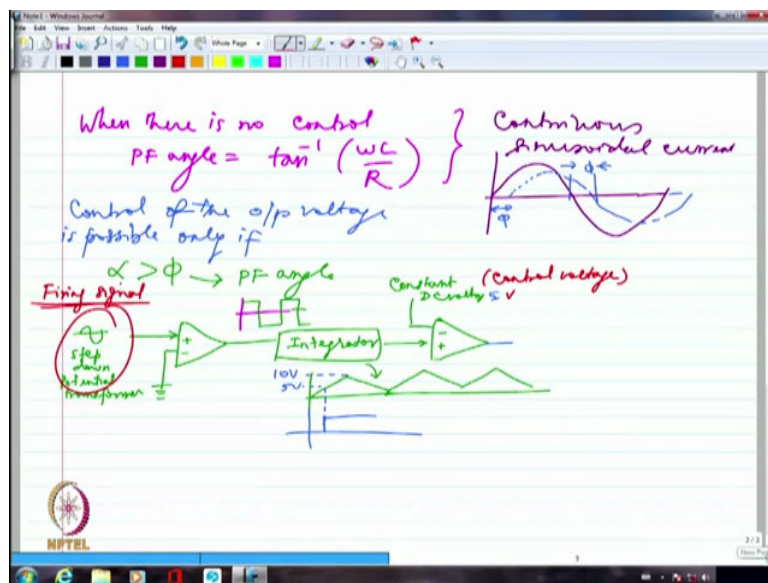 Note1 - Windows Journal
File Edit View Insert Actions Tools Help
Whole Page
B I
When there is no control
PF angle = tan⁻¹ (ωC/R)
Continuous
sinusoidal current
φ
φ
Control of the o/p voltage
is possible only if
α > φ → PF angle
Firing signal
step
down
potential
transformer
+
-
Integrator
Constant
DC voltg 5 V
(Control voltage)
-
+
10V
5V
NPTEL
3
3 / 3
New Page